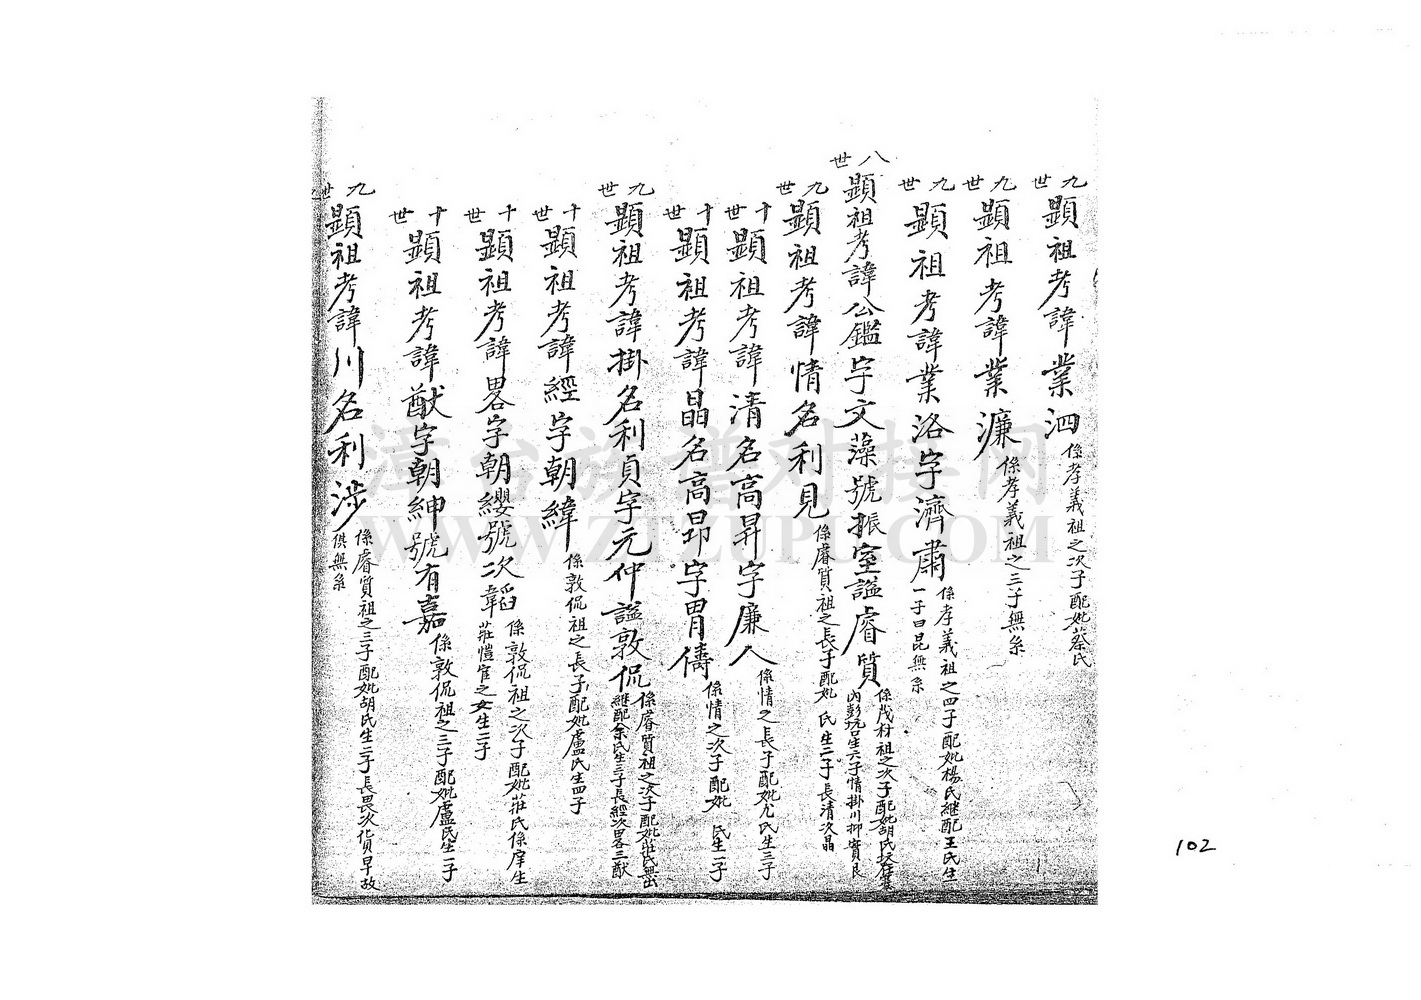 九世 顯祖考諱業泗 係孝義祖之次子配妣蔡氏
九世 顯祖考諱業濂 係孝義祖之三子無系
九世 顯祖考諱業洛字濟肅 係孝義祖之四子配妣楊氏継配王氏生一子曰昆無系
八世 顯祖考諱公鑑字文藻號振室謚睿質 係茂材祖之次子配妣胡氏 生六子情掛川
九世 顯祖考諱情名利見 係睿質祖之長子配妣 氏生二子長清次晶
十世 顯祖考諱清名高昇字廉人 係情之長子配妣尤氏生三子
十世 顯祖考諱晶名高昂字胃儔 係情之次子配妣 氏生一子
九世 顯祖考諱掛名利貞字元仲謚敦侃 係睿質祖之次子配妣莊氏無出継配余氏生三子長經次畧三猷
十世 顯祖考諱經字朝緯 係敦侃祖之長子配妣盧氏生四子
十世 顯祖考諱畧字朝纓號次韜 係敦侃祖之次子配妣莊氏係庠生莊愷官之女生二子
十世 顯祖考諱猷字朝紳號有嘉 係敦侃祖之三子配妣盧氏生一子
九世 顯祖考諱川名利涉 係睿質祖之三子配妣胡氏生二子長畏次貨早故俱無系
漳台族谱对接网
WWW.ZTZUPU.COM
102